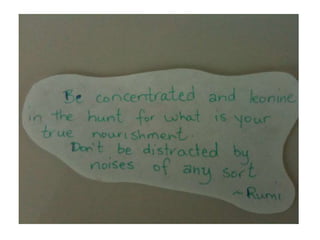 Be concentrated and leonine
in the hunt for what is your
true nourishment.
Don't be distracted by
noises of any sort
~Rumi